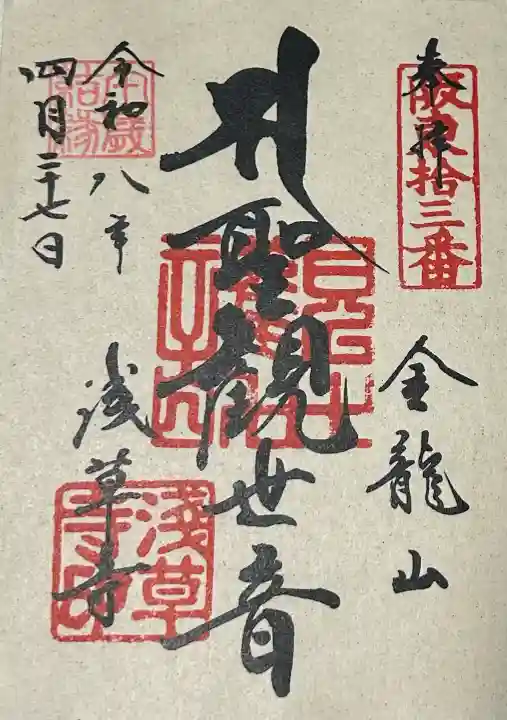 奉拝
阪東拾三番
金龍山
聖観世音
令和八年
四月二十七日
浅草寺
淺草寺印